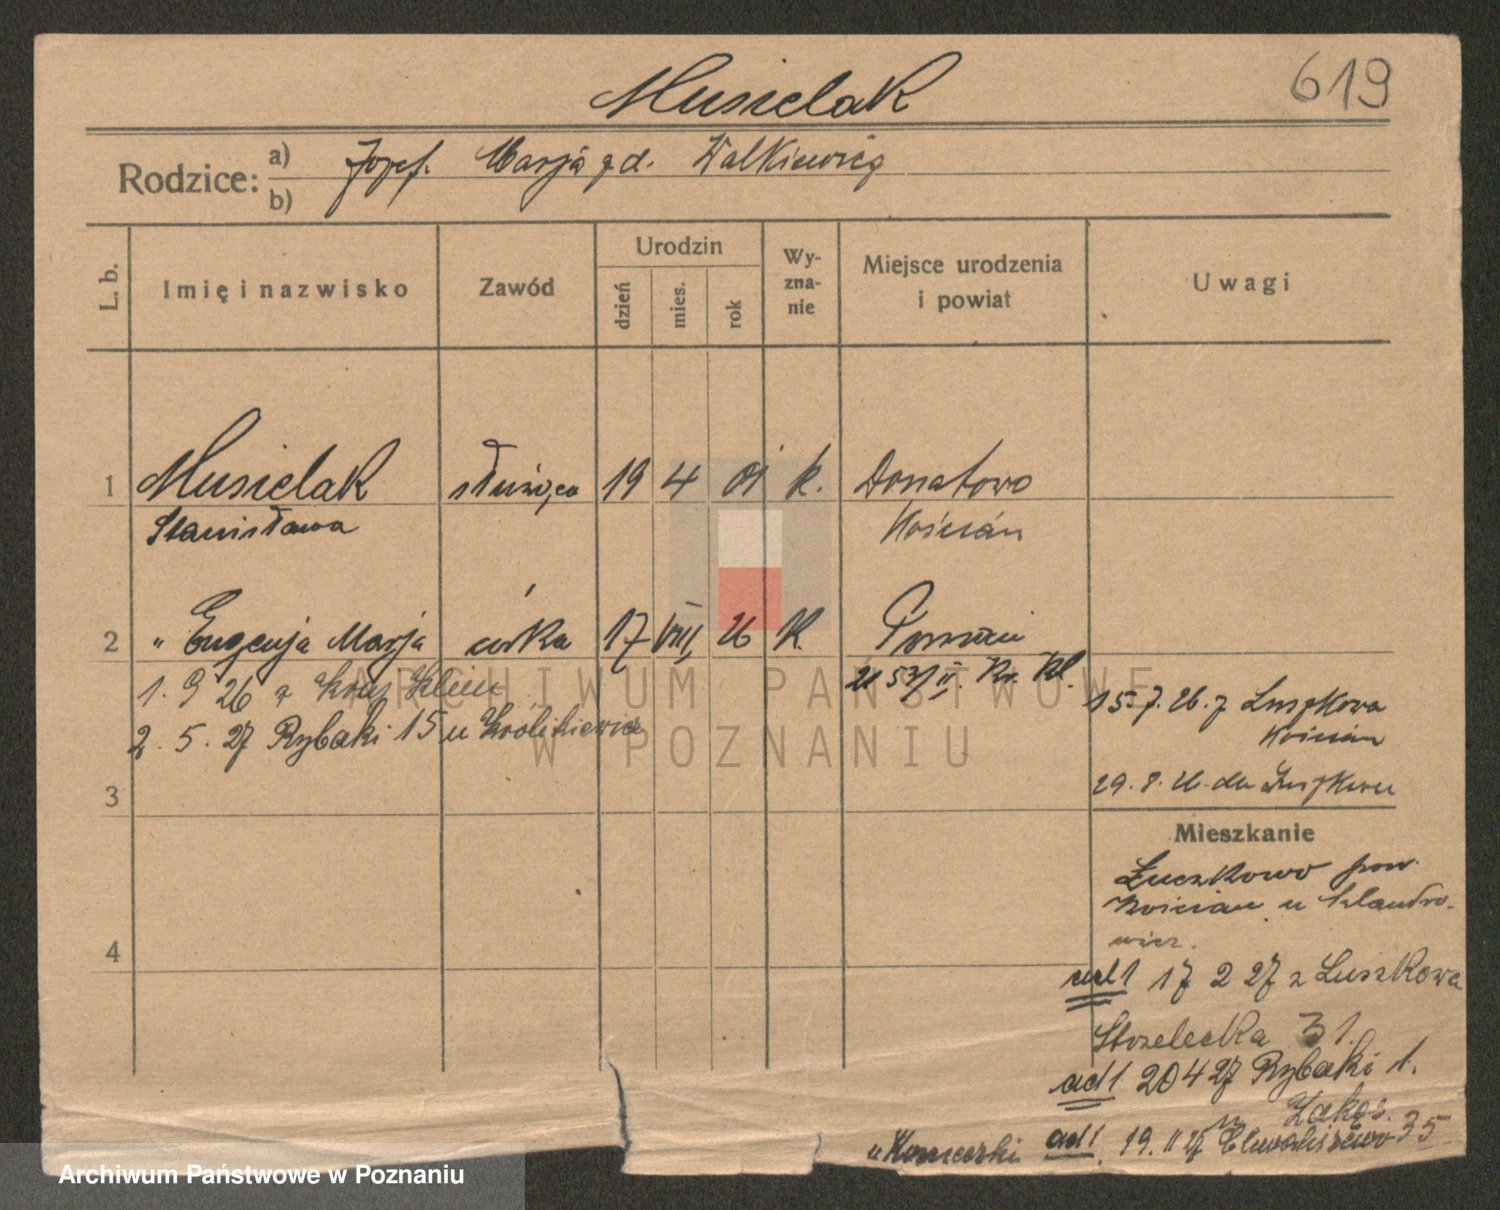 Musielak
619
Rodzice:
a) Józef. Marja zd. Walkiewicz
b)
L. b.
Imię i nazwisko
Zawód
Urodzin
dzień
mies.
rok
Wy-
zna-
nie
Miejsce urodzenia
i powiat
Uwagi
1 Musielak służąca 19 4 01 k. Donatowo
Stanisława Kościan
2 " Eugenja Marja córka 17 VIII 26 K. Poznań
1. 9 26 z
2. 5. 27 Rybaki 15 u Królikiewicz
15. 7. 26. z Luszkowa
Kościan
29. 8. 26. do Luszkowa
3
Mieszkanie
Łuczkowo pow.
Kościan u
4
ad 1 17 2 27 z Luszkowa
Strzelecka 31.
ad 1 20 4 27 Rybaki 1.
ad 1. 19. 27 35
ARCHIWUM PAŃSTWOWE
W POZNANIU
Archiwum Państwowe w Poznaniu